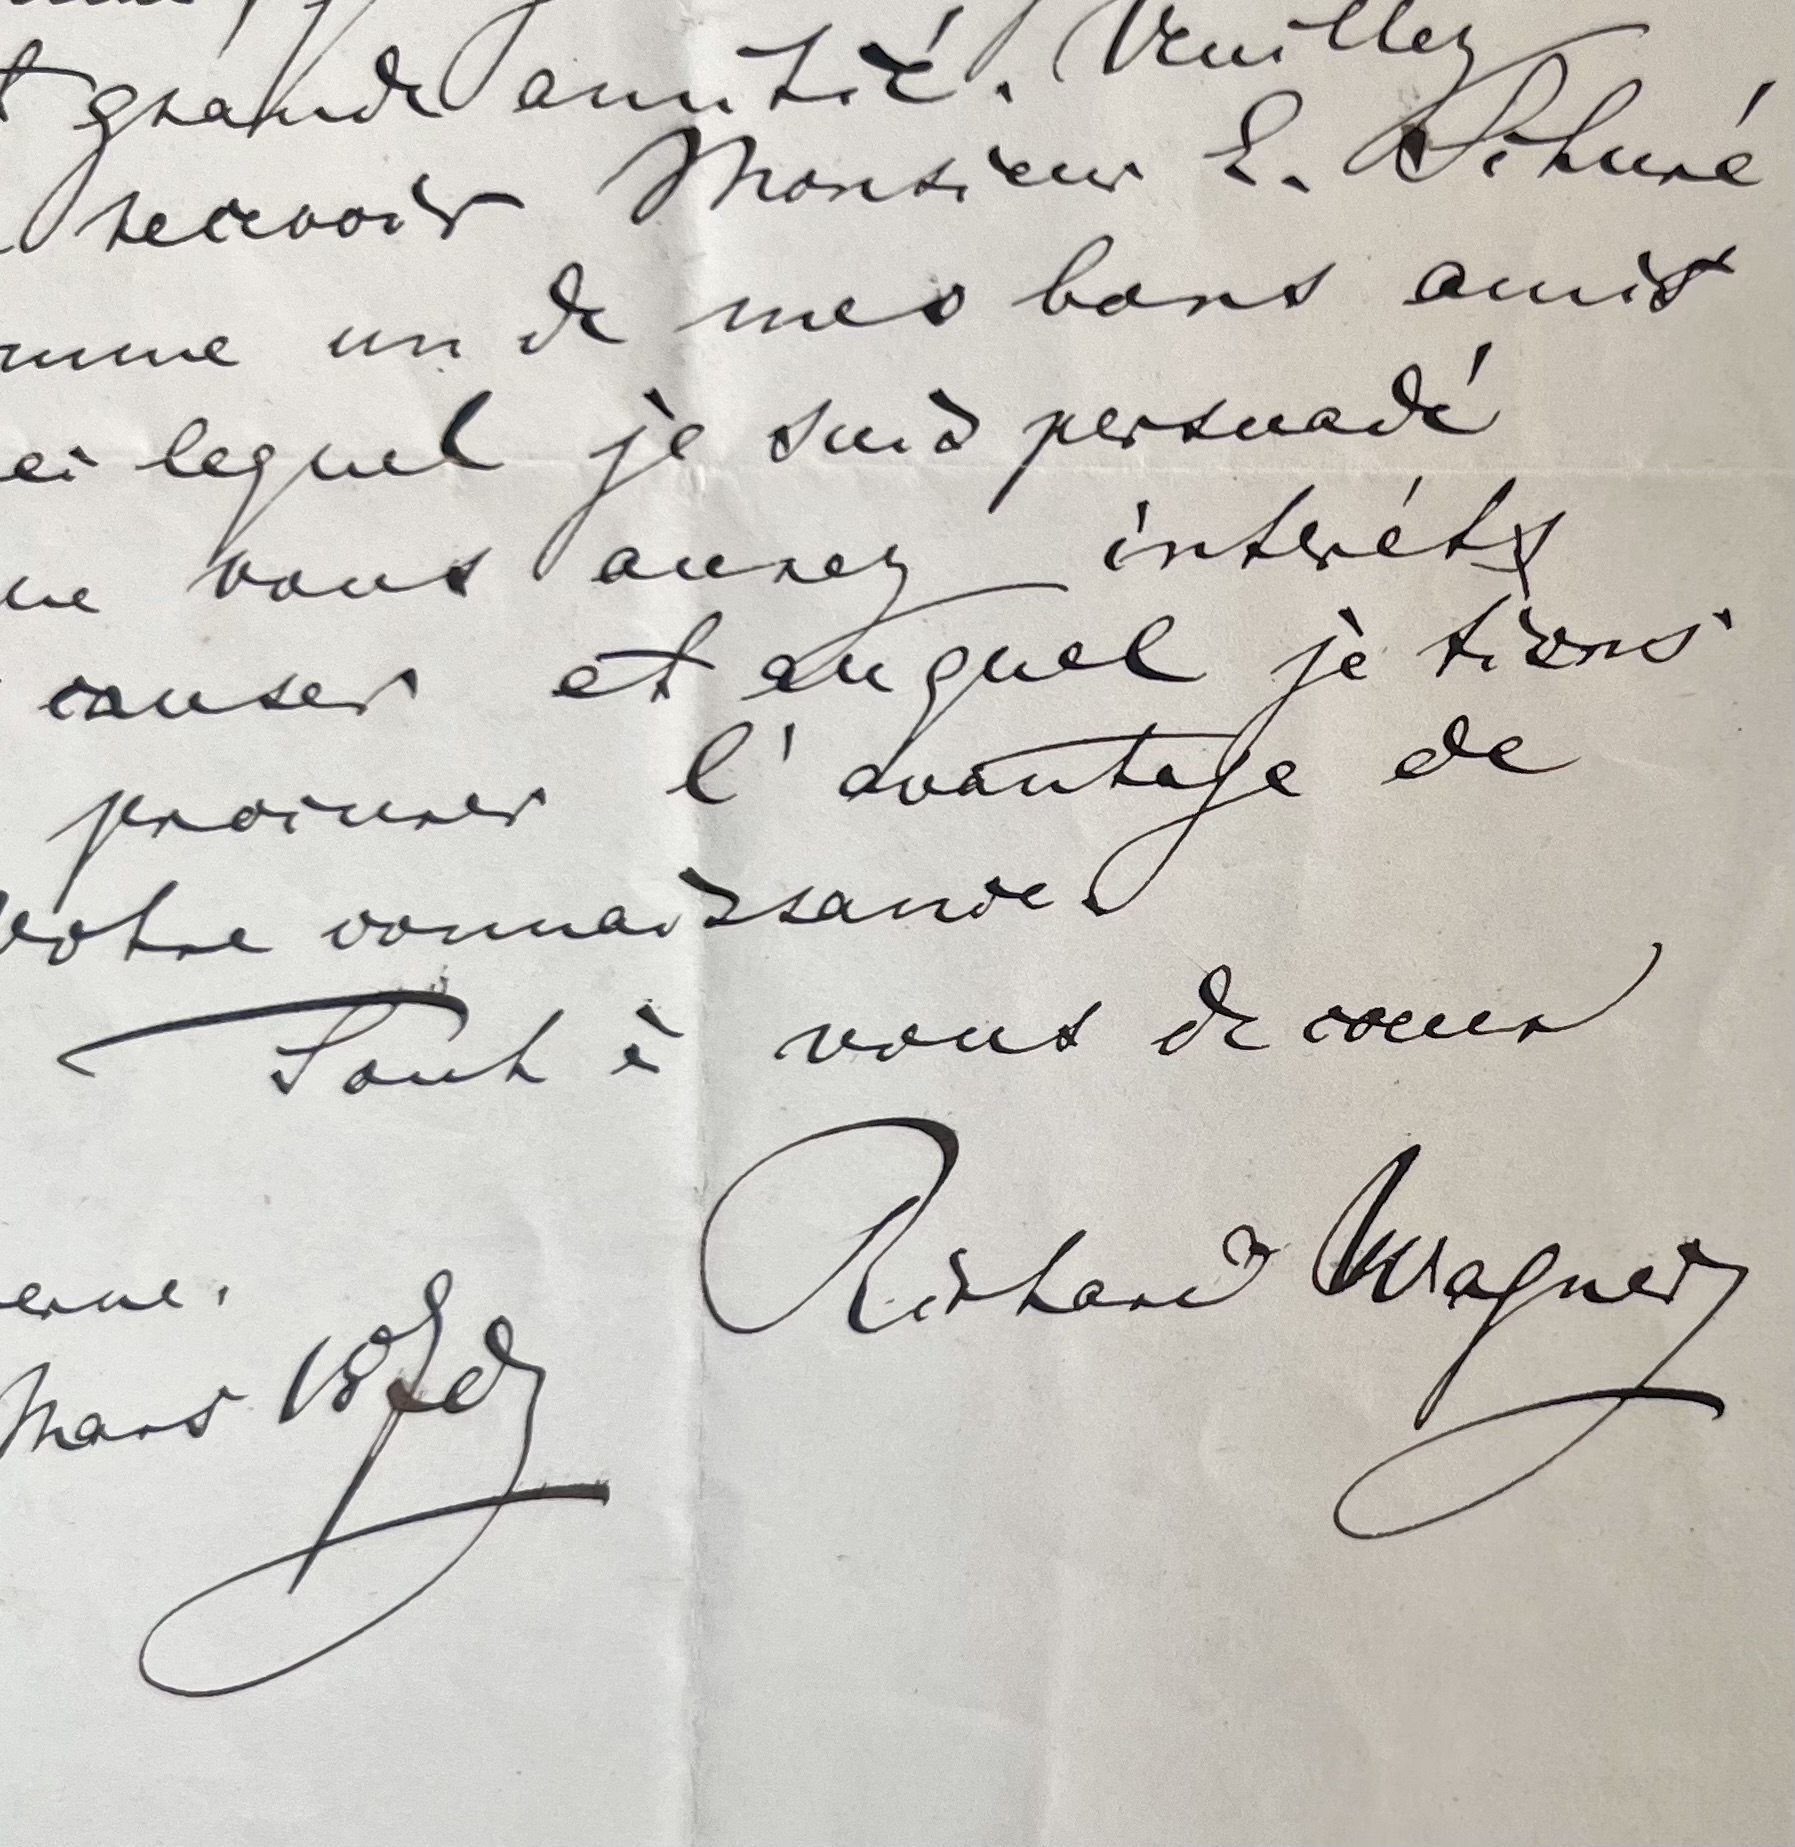 grande amitié. Veuillez
recevoir Monsieur E. Schuré
mme un de mes bons amis
lequel je suis persuadé
ue vous aurez intérêts
causer et auquel je tiens
procurer l'avantage de
votre connaissance.
Tout à vous de coeur
Richard Wagner
erne.
Mars